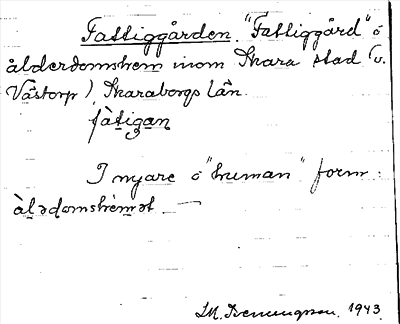 Fattiggården. "Fattiggård" ö
ålderdomshem inom Skara stad (v.
Västorp), Skaraborgs län.
fàtigan
I nyare ö "human" form:
àlədomshèmət —
1943.